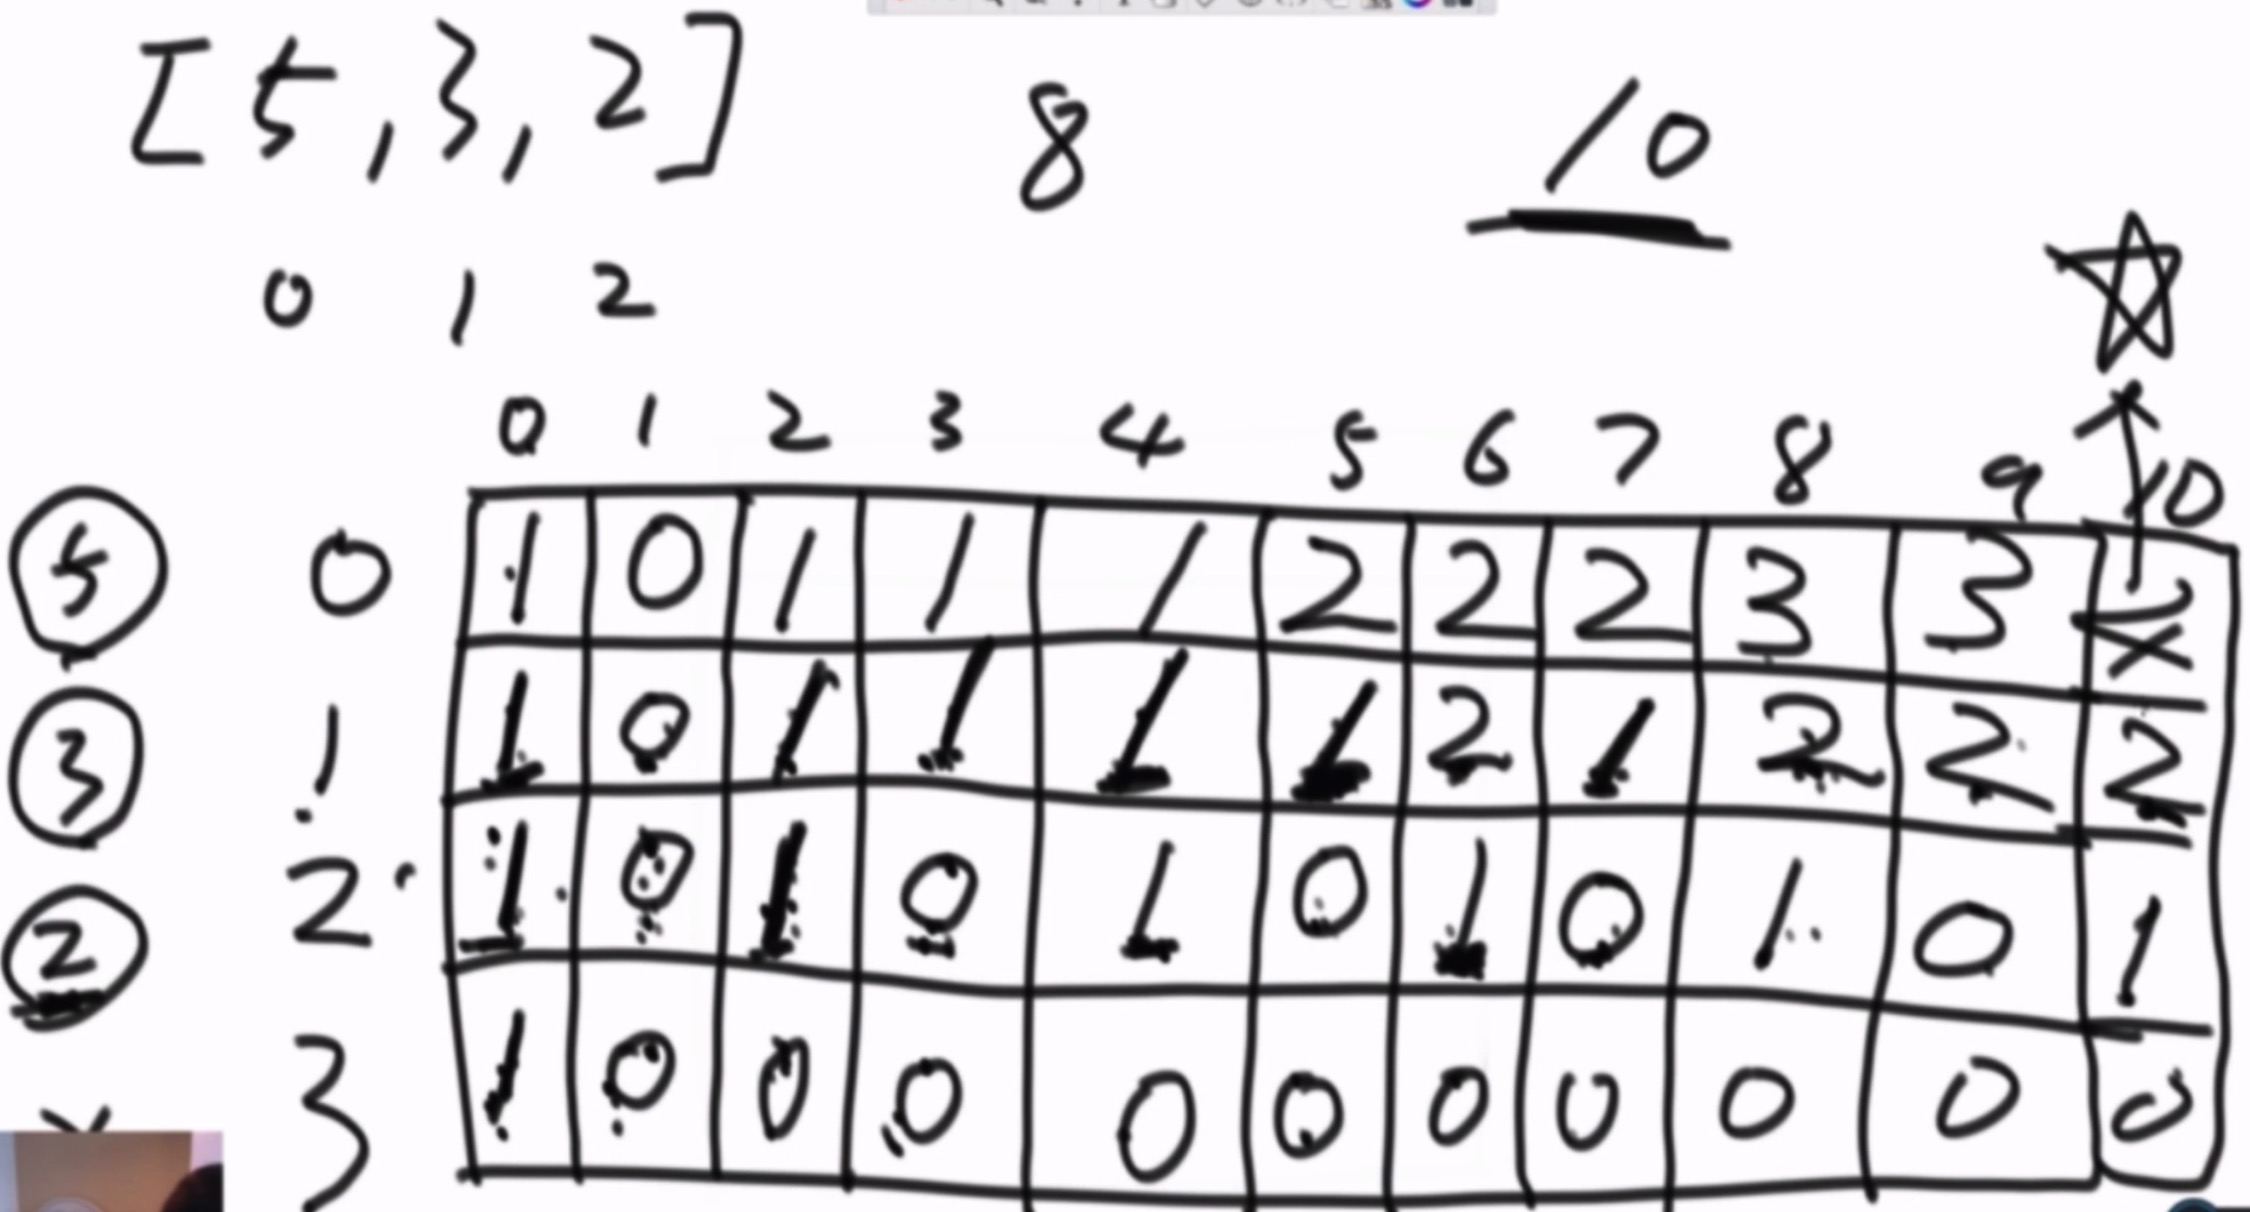 [5,3,2] 8 10
0 1 2
0 1 2 3 4 5 6 7 8 9 10
5 0 1 0 1 1 1 2 2 2 3 3
3 1 1 0 1 1 1 1 2 1 2 2 2
2 2 1 0 1 0 1 0 1 0 1 0 1
3 1 0 0 0 0 0 0 0 0 0 0